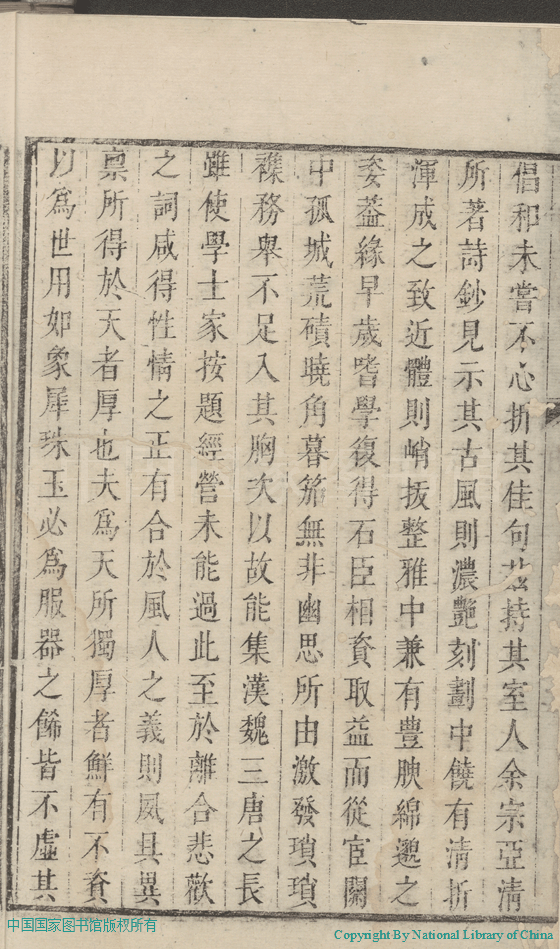 倡和未嘗不心折其佳句茲持其室人余宗亞淸
所著詩鈔見示其古風則濃艷刻劃中饒有淸折
渾成之致近體則峭拔整雅中兼有豊腴綿邈之
姿葢緣早歲嗜學復得石臣相資取益而從宦關
中孤城荒磧曉角暮笳無非幽思所由激發瑣瑣
襍務舉不足入其胸次以故能集漢魏三唐之長
雖使學士家按題經營未能過此至於離合悲歡
之詞咸得性情之正有合於風人之義則夙具異
禀所得於天者厚也夫爲天所獨厚者鮮有不資
以爲世用如象犀珠玉必爲服器之餙皆不虛其
中国国家图书馆版权所有
Copyright By National Library of China